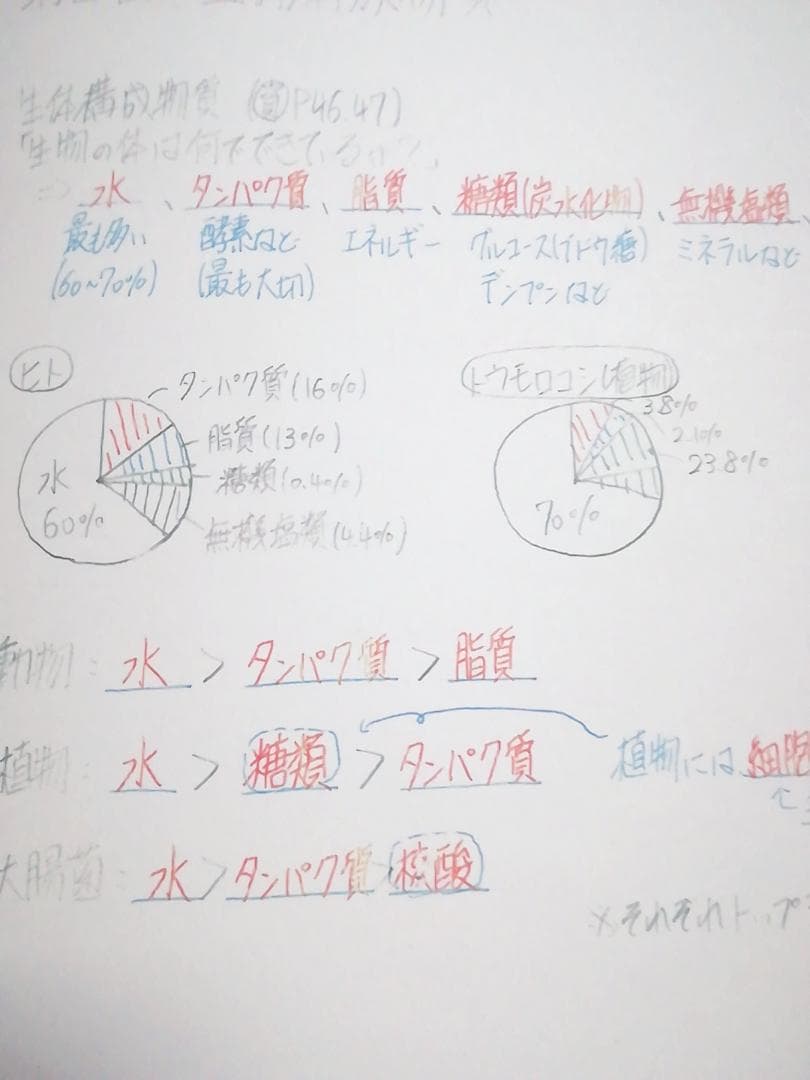 生体構成物質 (資P46.47)
「生物の体は何でできているか?」
⇒ 水、タンパク質、脂質、糖類(炭水化物)、無機塩類
最も多い 酵素など エネルギー グルコース(ブドウ糖) ミネラルなど
(60~70%) (最も大切) デンプンなど
ヒト
タンパク質(16%)
脂質(13%)
糖類(0.4%)
無機塩類(4.4%)
水
60%
トウモロコシ(植物)
3.8%
2.1%
23.8%
70%
動物: 水 > タンパク質 > 脂質
植物: 水 > 糖類 > タンパク質 植物には、細胞
大腸菌: 水 > タンパク質 核酸
※それぞれトップ3